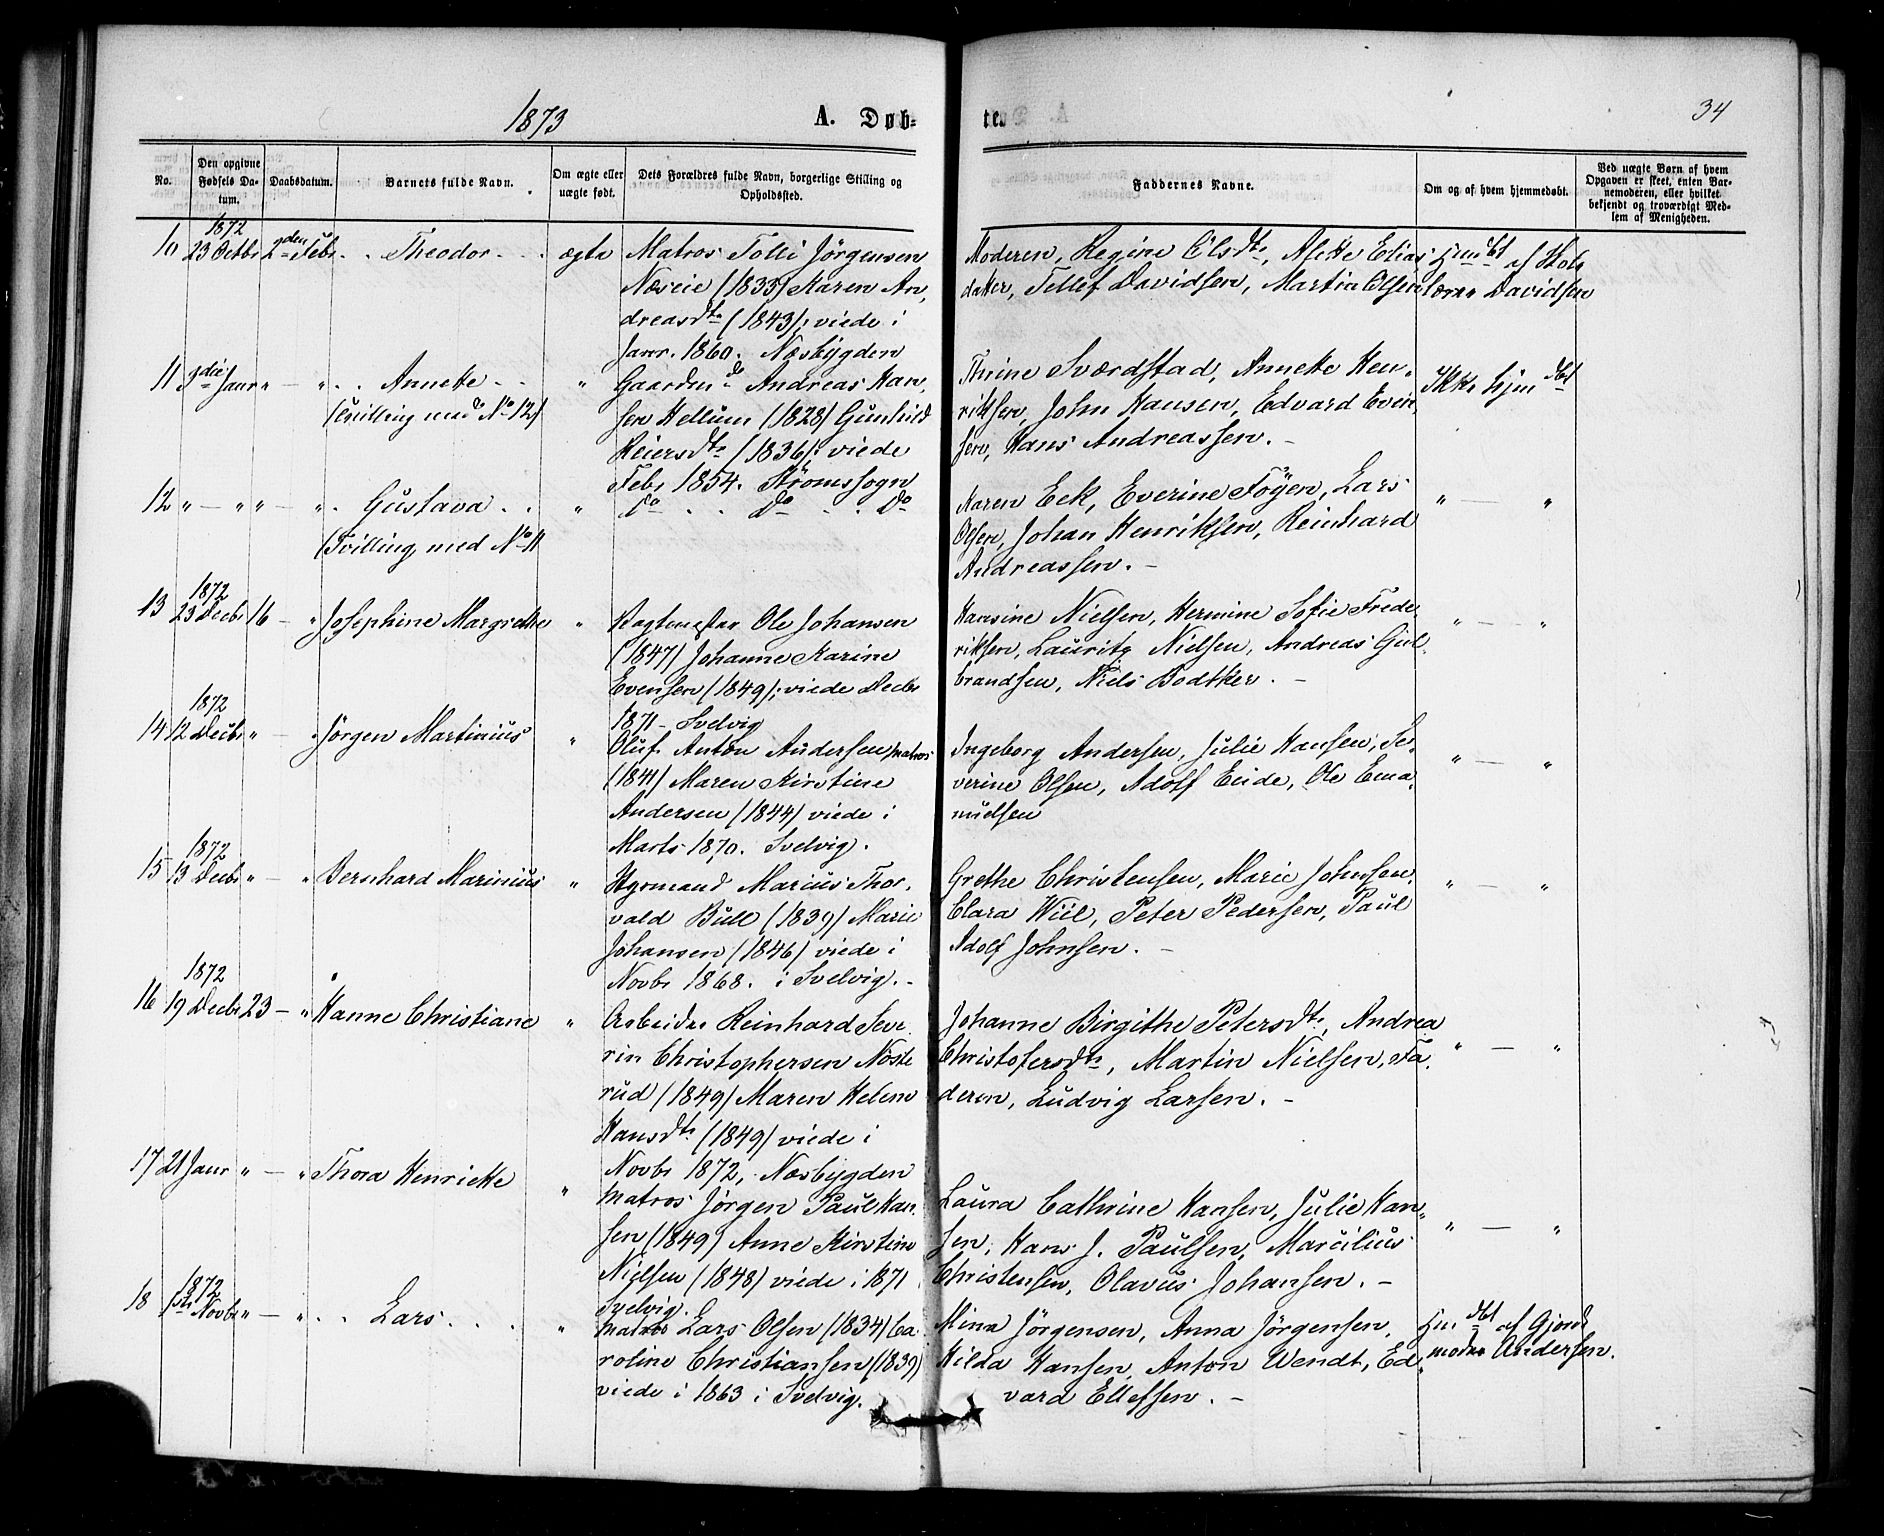 1873 A. Døb-
te. 34
No. Den opgivne Fødsels Da-tum. Daabsdatum. Barnets fulde Navn. Om ægte eller uægte født. Dets Forældres fulde Navn, borgerlige Stilling og Opholdssted.
Faddernes Navne. Om og af hvem hjemmedøbt. Ved uægte Børn af hvem Opgaven er skeet, enten Bar-nemoderen, eller hvilket bekjendt og troværdigt Med-lem af Menigheden.
1872
10 23 Octbr 2den Febr. . . Theodor . . . ægte Matros Tolli Jörgensen
Næseie (1833) Karen An,
dreasdtr (1843); viede i
Janr. 1860. Næsbygden
Moderen, Regine Olsdtr, Alette Elias
datter, Tellef Davidsen, Martin Olsen
Hmdbt af Skole
lærer Davidsen
11 3die Janr " — " . . Annette . . " Gaardmd Andreas Han,
(Tvilling med No 12) sen Hellum (1828) Gunhild
Reiersdtr (1836); viede
Febr 1854. Strömssogn
Thrine Sværdstad, Annette Hen,
riksen, John Hansen, Edvard Evin
sen, Hans Andreassen. –
Ikke hjmdbt
12 " — " " — " . Gustava . . " Do . . Do . . Do
(Tvilling med No 11
Karen Eek, Everine Föyen, Lars
Olsen, Johan Henriksen, Reinhard
Andreassen. –
" — "
1872
13 23 Decbr 16 — " Josephine Margrethe " Ole Johansen
(1847) Johanne Karine
Evensen (1849); viede Decbr
1871 – Svelvig
Hansine Nielsen, Hermine Sofie Frede,
riksen, Lauritz Nielsen, Andreas Gul,
brandsen, Niels Bödtker. –
" — "
1872
14 12 Decbr " — " Jörgen Martinius " Oluf Anton Andersen, matros
(1841) Maren Kirstine
Andersen (1844) viede i
Marts 1870. Svelvig.
Ingeborg Andersen, Julie Hansen, Se,
verine Olsen, Adolf Eeide, Ole Ema,
nuelsen
" — "
1872
15 13 Decbr " — " Bernhard Marinius " Styrmand Marius Thor,
vald Bull (1839) Marie
Johansen (1846) viede i
Novbr 1868. i Svelvig. –
Grethe Christensen, Marie Johnsen,
Clara Wiil, Peter Pedersen, Paul
Adolf Johnsen. –
" — "
1872
16 19 Decbr 23 — " Hanne Christiane " Arbeider Reinhard Seve,
rin Christophersen Nöste
rud (1849) Maren Helene
Hansdtr (1849) viede i
Novbr 1872, Næsbygden
Johanne Birgithe Petersdtr, Andrea
Christofersdtr, Martin Nielsen, Fa,
deren, Ludvig Larsen. –
" — "
17 21 Janr " — " Thora Henriette " Matros Jörgen Paul Han,
sen (1849) Anne Kirstine
Nielsen (1848) viede i 1871
Svelvig.
Laura Cathrine Hansen, Julie Han,
sen, Hans J. Paulsen, Marcilius
Christensen, Olavus Johansen. –
" — "
1872
18 1ste Novbr " — " . . Lars . . . " Matros Lars Olsen (1834) Ca,
roline Christiansen (1839)
viede i 1863 i Svelvig.
Mina Jörgensen, Anna Jörgensen,
Hilda Hansen, Anton Wendt, Ed,
vard Ellefsen. –
Hmdbt af Gjord
moder Andersen.